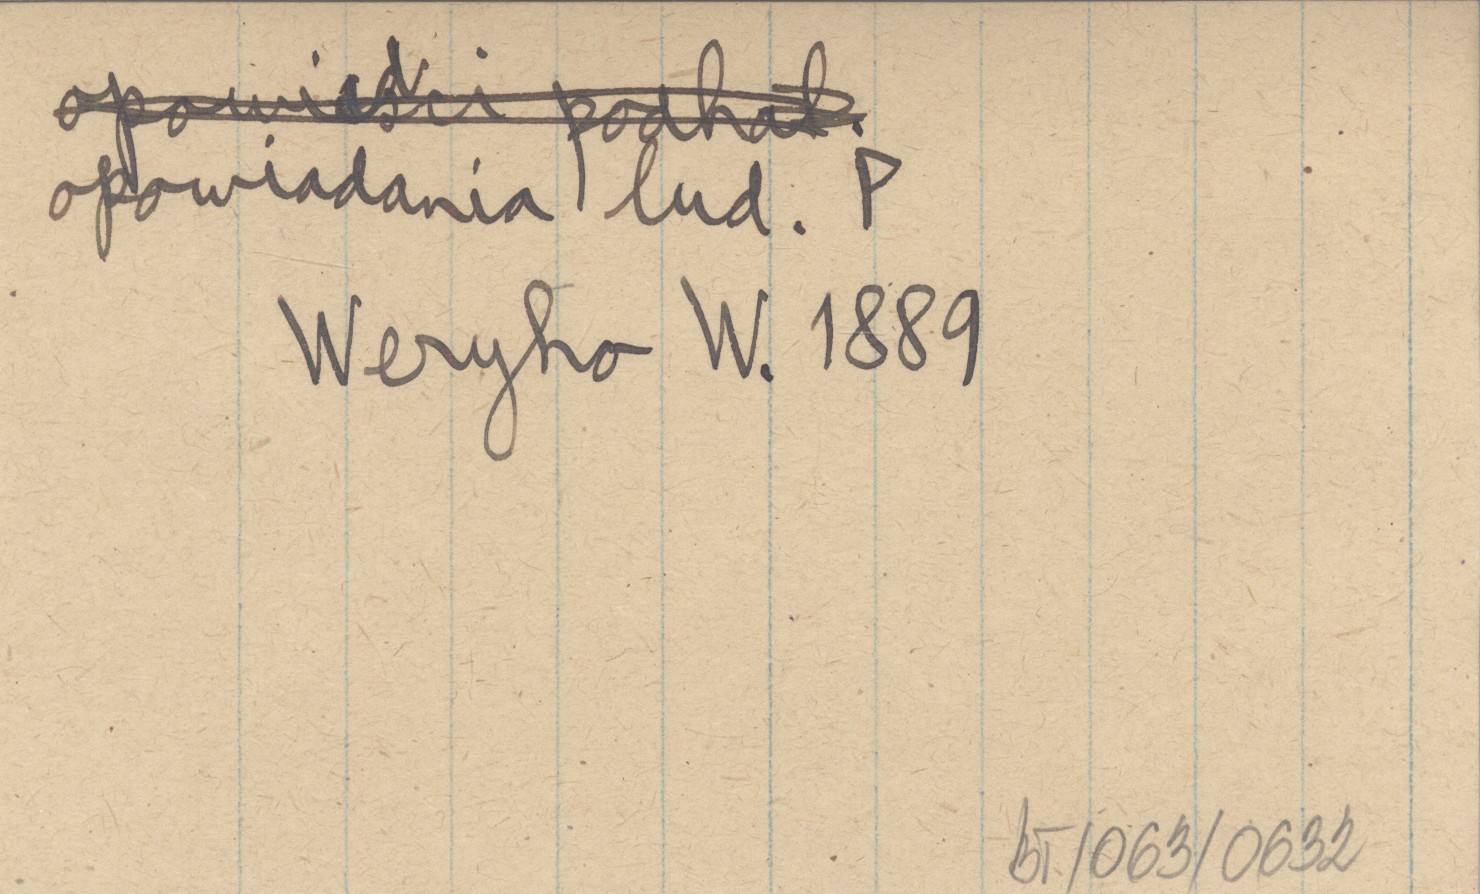 opowieści podhal.
opowiadania lud. P
Weryho W. 1889
BT/063/0632